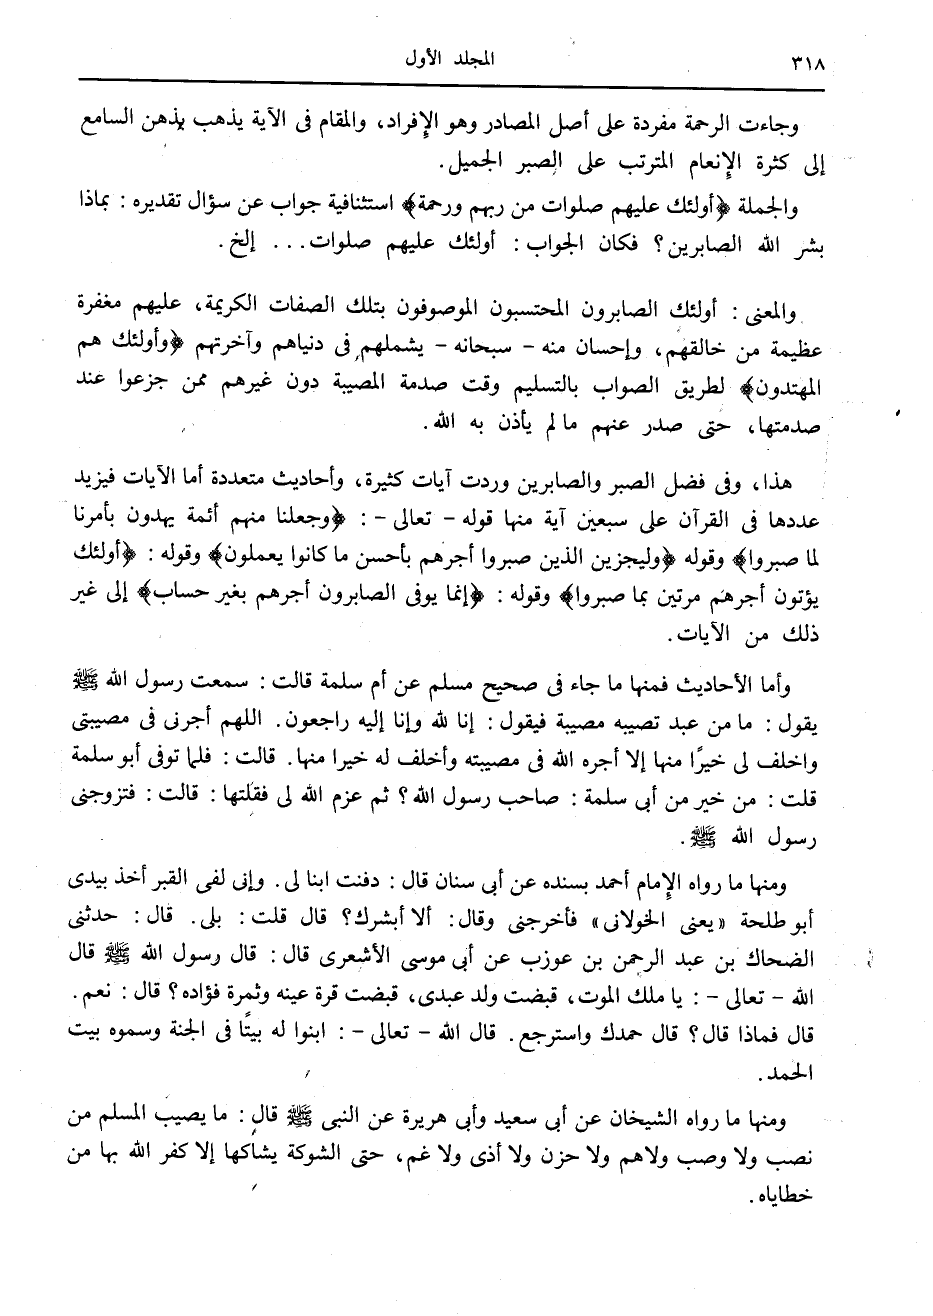 ٣١٨ المجلد الأول
وجاءت الرحمة مفردة على أصل المصادر وهو الإفراد، والمقام فى الآية يذهب بذهن السامع
إلى كثرة الإنعام المترتب على الصبر الجميل.
والجملة ﴿أولئك عليهم صلوات من ربهم ورحمة﴾ استئنافية جواب عن سؤال تقديره : بماذا
بشر الله الصابرين؟ فكان الجواب : أولئك عليهم صلوات... إلخ.
والمعنى : أولئك الصابرون المحتسبون الموصوفون بتلك الصفات الكريمة، عليهم مغفرة
عظيمة من خالقهم، وإحسان منه - سبحانه - يشملهم فى دنياهم وآخرتهم ﴿وأولئك هم
المهتدون﴾ لطريق الصواب بالتسليم وقت صدمة المصيبة دون غيرهم ممن جزعوا عند
صدمتها، حتى صدر عنهم ما لم يأذن به الله.
هذا، وفى فضل الصبر والصابرين وردت آيات كثيرة، وأحاديث متعددة أما الآيات فيزيد
عددها فى القرآن على سبعين آية منها قوله - تعالى - : ﴿وجعلنا منهم أئمة يهدون بأمرنا
لما صبروا﴾ وقوله ﴿وليجزين الذين صبروا أجرهم بأحسن ما كانوا يعملون﴾ وقوله : ﴿أولئك
يؤتون أجرهم مرتين بما صبروا﴾ وقوله : ﴿إنما يوفى الصابرون أجرهم بغير حساب﴾ إلى غير
ذلك من الآيات.
وأما الأحاديث فمنها ما جاء فى صحيح مسلم عن أم سلمة قالت : سمعت رسول الله ﷺ
يقول : ما من عبد تصيبه مصيبة فيقول : إنا لله وإنا إليه راجعون. اللهم أجرنى فى مصيبتى
واخلف لى خيرًا منها إلا أجره الله فى مصيبته وأخلف له خيرا منها. قالت : فلما توفى أبو سلمة
قلت : من خير من أبى سلمة : صاحب رسول الله؟ ثم عزم الله لى فقلتها : قالت : فتزوجنى
رسول الله ﷺ.
ومنها ما رواه الإمام أحمد بسنده عن أبى سنان قال : دفنت ابنا لى. وإنى لفى القبر أخذ بيدى
أبو طلحة «يعنى الخولانى» فأخرجنى وقال : ألا أبشرك؟ قال قلت : بلى. قال : حدثنى
الضحاك بن عبد الرحمن بن عوزب عن أبى موسى الأشعرى قال : قال رسول الله ﷺ قال
الله - تعالى - : يا ملك الموت، قبضت ولد عبدى، قبضت قرة عينه وثمرة فؤاده؟ قال : نعم.
قال فماذا قال؟ قال حمدك واسترجع. قال الله - تعالى - : ابنوا له بيتًا فى الجنة وسموه بيت
الحمد.
ومنها ما رواه الشيخان عن أبى سعيد وأبى هريرة عن النبى ﷺ قال : ما يصيب المسلم من
نصب ولا وصب ولاهم ولا حزن ولا أذى ولا غم، حتى الشوكة يشاكها إلا كفر الله بها من
خطاياه.